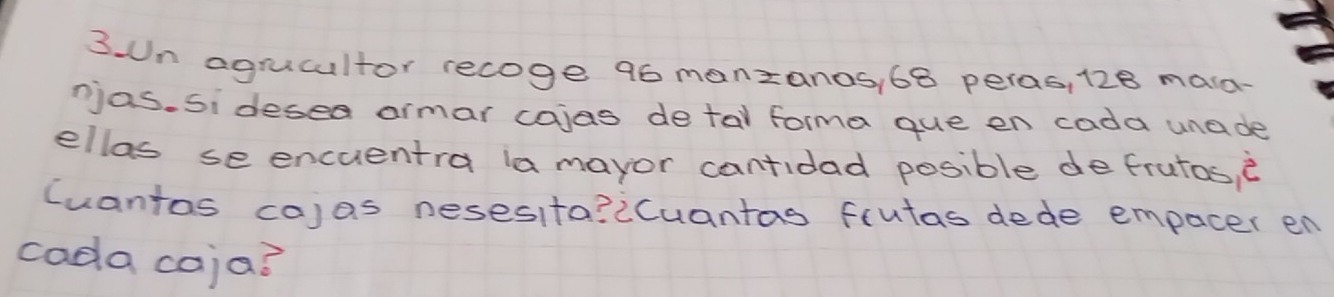 3.Un agrucultor recoge 96 manzanas,68 peras,128 mara-
njas.si desea armar cajas de tal forma que en cada una de
ellas se encuentra la mayor cantidad posible de frutas,¿
Cuantas cajas nesesita?¿Cuantas frutas dede empacer en
cada caja?